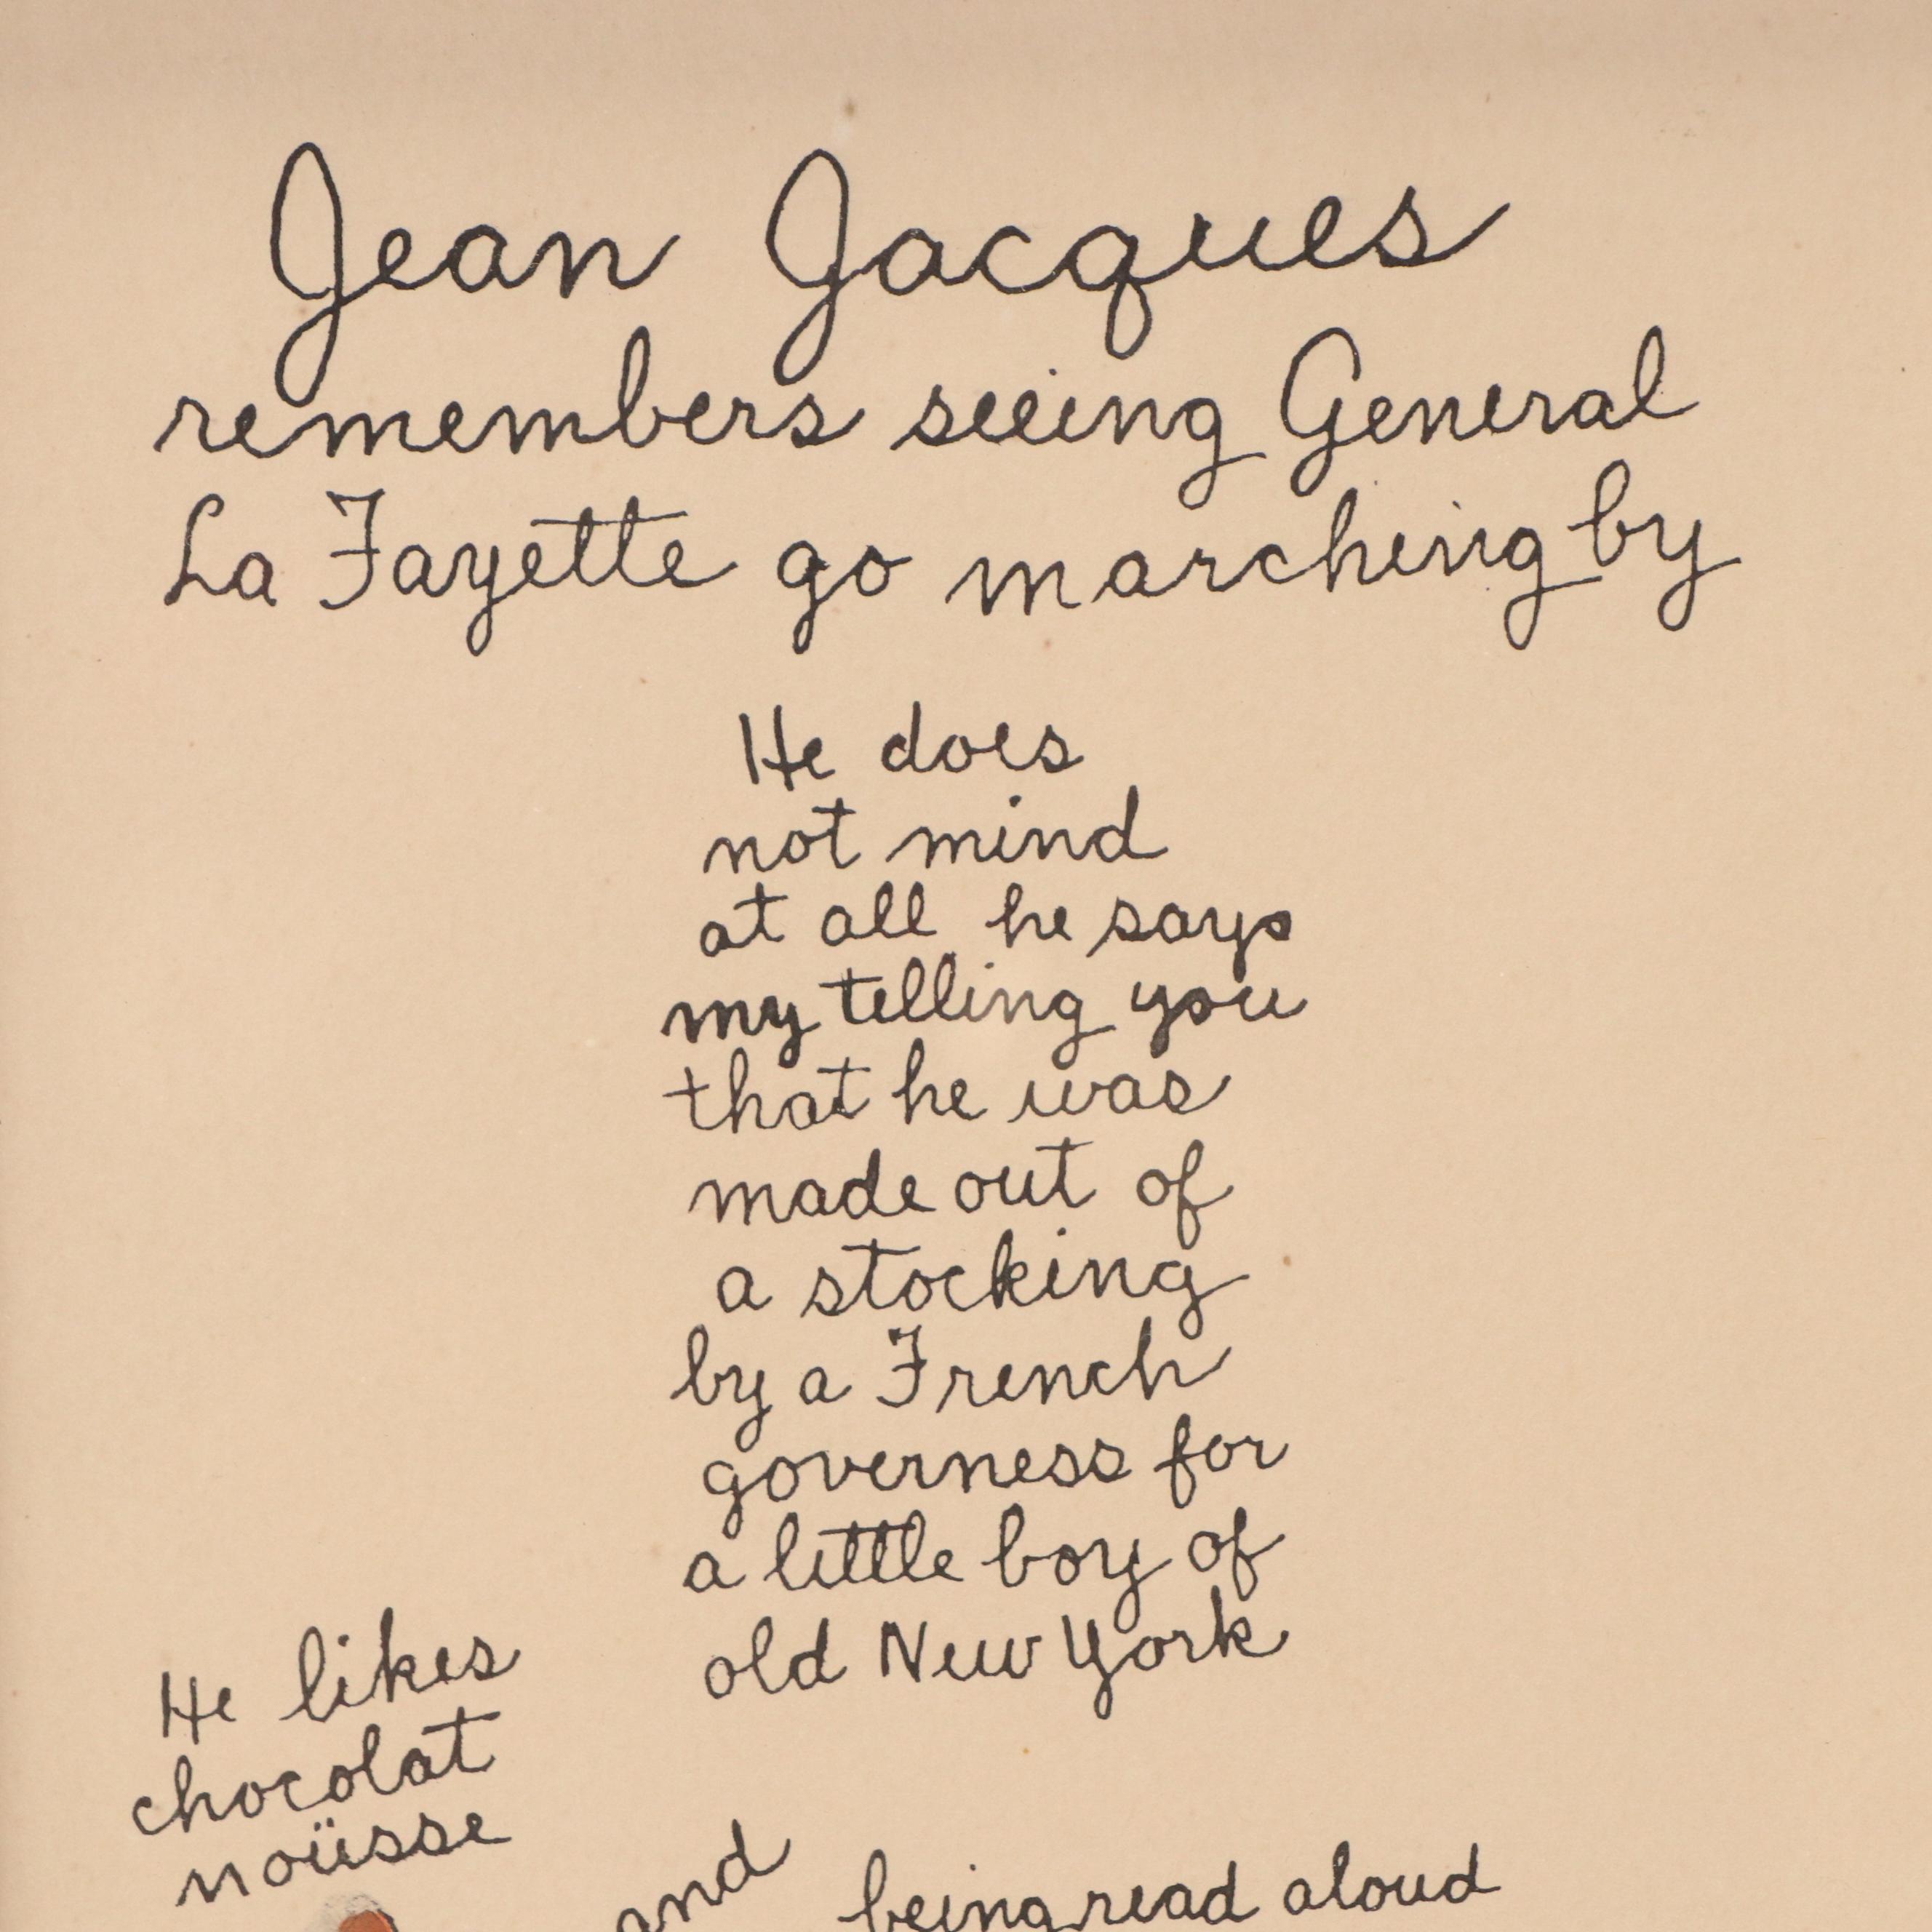 Jean Jacques
remembers seeing General
La Fayette go marching by
He does
not mind
at all he says
my telling you
that he was
made out of
a stocking
by a French
governess for
a little boy of
old New York
He likes
chocolat
noüsse
and being read aloud